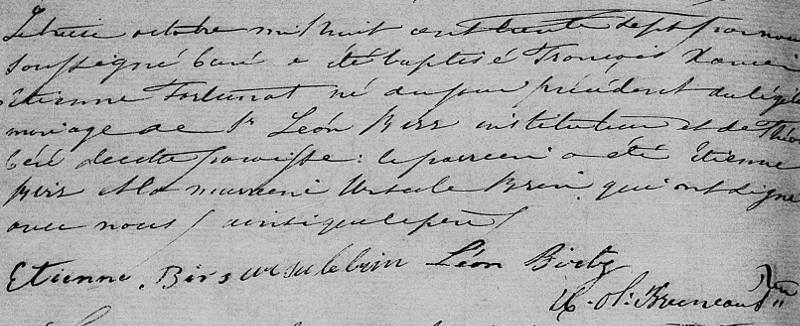 Le treize octobre mil huit cent trente sept par nous
soussigné curé a été baptisé François Xavier
Etienne Fortunat né du jour précédent du légit
mariage de Sr Léon Birs instituteur et de Théo
de cette paroisse : le parrain a été Etienne
Birs et la marraine Ursule Brin qui ont signé
avec nous / ainsi que le père /
Etienne Birs ursule brin Léon Birtz
Bruneau Ptre